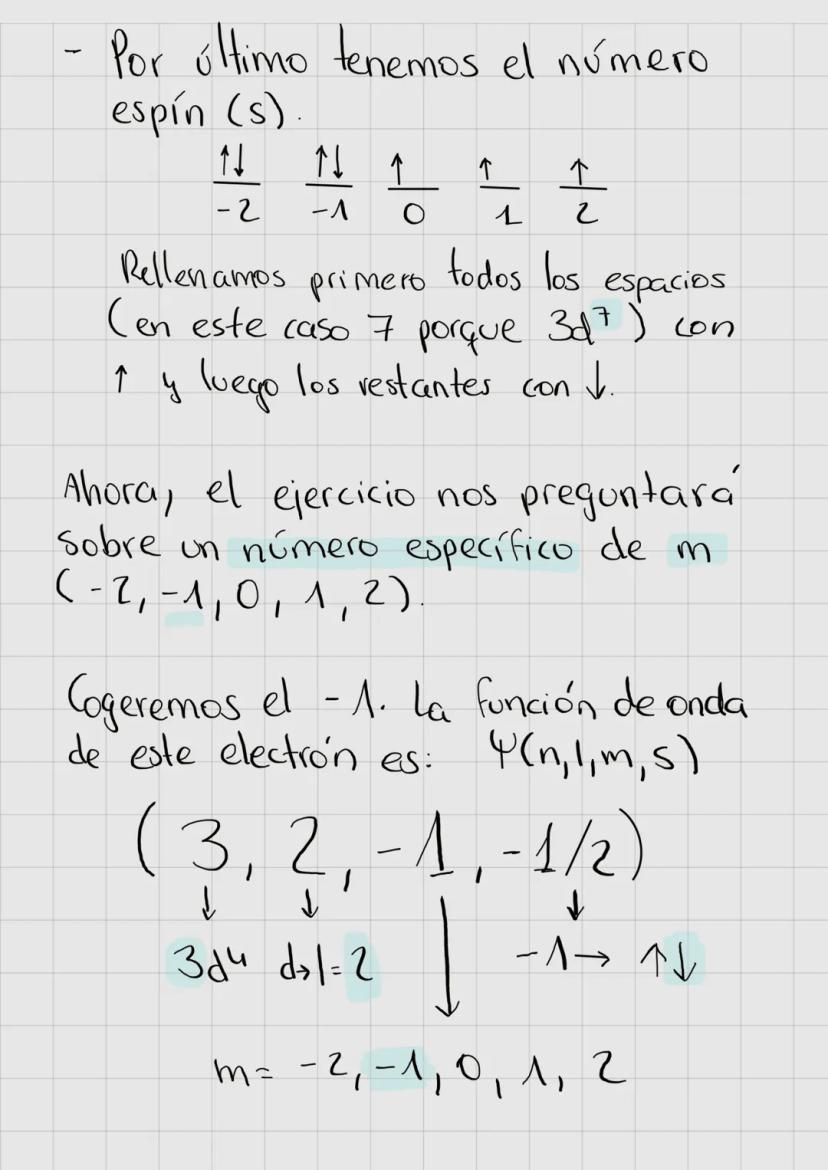 - Por último tenemos el número
espín (s).
↑↓ ↑↓ ↑ ↑ ↑
-2 -1 0 1 2
Rellenamos primero todos los espacios
(en este caso 7 porque 3d⁷) con
↑ y luego los restantes con ↓.
Ahora, el ejercicio nos preguntará
sobre un número específico de m
(-2, -1, 0, 1, 2).
Cogeremos el -1. La función de onda
de este electrón es: Ψ(n, l, m, s)
(3, 2, -1, -1/2)
↓ ↓ ↓ ↓
3d⁴ d→l=2 -1→ ↑↓
m= -2, -1, 0, 1, 2